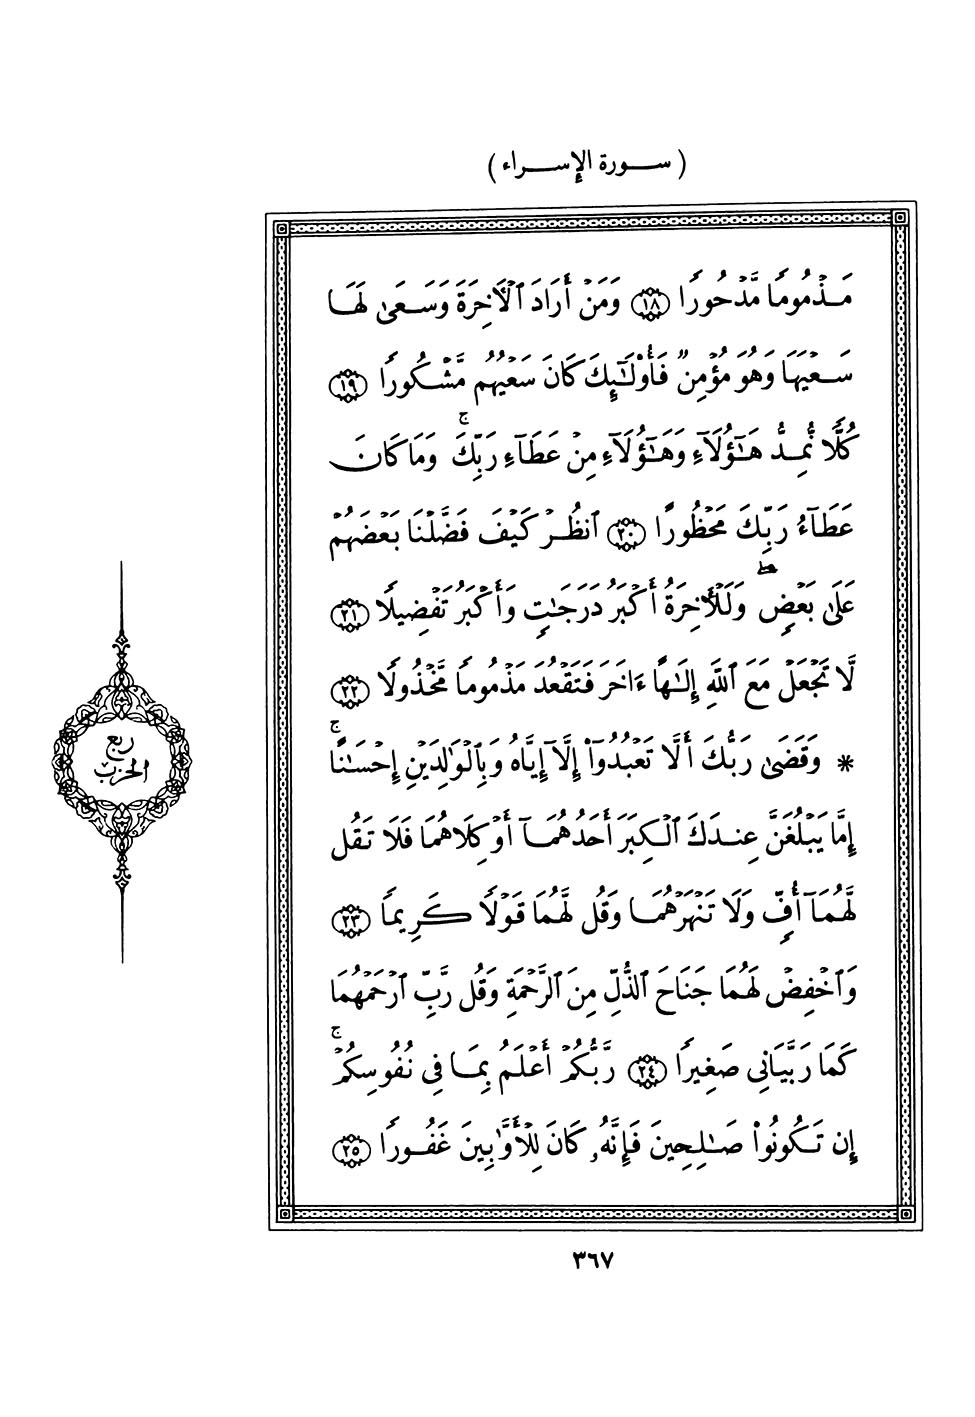 ( ســورة الإســراء )
مَذْمُومًا مَّدْحُورًا ١٨ وَمَنْ أَرَادَ ٱلْأَخِرَةَ وَسَعَىٰ لَهَا
سَعْيَهَا وَهُوَ مُؤْمِنٌ فَأُوْلَٰٓئِكَ كَانَ سَعْيُهُم مَّشْكُورًا ١٩
كُلًّا نُّمِدُّ هَٰٓؤُلَآءِ وَهَٰٓؤُلَآءِ مِنْ عَطَآءِ رَبِّكَۚ وَمَا كَانَ
عَطَآءُ رَبِّكَ مَحْظُورًا ٢٠ ٱنظُرْ كَيْفَ فَضَّلْنَا بَعْضَهُمْ
عَلَىٰ بَعْضٍۖ وَلَلْأَخِرَةُ أَكْبَرُ دَرَجَٰتٍ وَأَكْبَرُ تَفْضِيلًا ٢١
لَّا تَجْعَلْ مَعَ ٱللَّهِ إِلَٰهًا ءَاخَرَ فَتَقْعُدَ مَذْمُومًا مَّخْذُولًا ٢٢
* وَقَضَىٰ رَبُّكَ أَلَّا تَعْبُدُوٓاْ إِلَّآ إِيَّاهُ وَبِٱلْوَٰلِدَيْنِ إِحْسَٰنًاۚ
إِمَّا يَبْلُغَنَّ عِندَكَ ٱلْكِبَرَ أَحَدُهُمَآ أَوْ كِلَاهُمَا فَلَا تَقُل
لَّهُمَآ أُفٍّ وَلَا تَنْهَرْهُمَا وَقُل لَّهُمَا قَوْلًا كَرِيمًا ٢٣
وَٱخْفِضْ لَهُمَا جَنَاحَ ٱلذُّلِّ مِنَ ٱلرَّحْمَةِ وَقُل رَّبِّ ٱرْحَمْهُمَا
كَمَا رَبَّيَانِى صَغِيرًا ٢٤ رَّبُّكُمْ أَعْلَمُ بِمَا فِى نُفُوسِكُمْۚ
إِن تَكُونُواْ صَٰلِحِينَ فَإِنَّهُۥ كَانَ لِلْأَوَّٰبِينَ غَفُورًا ٢٥
ربع
الحزب
٣٦٧